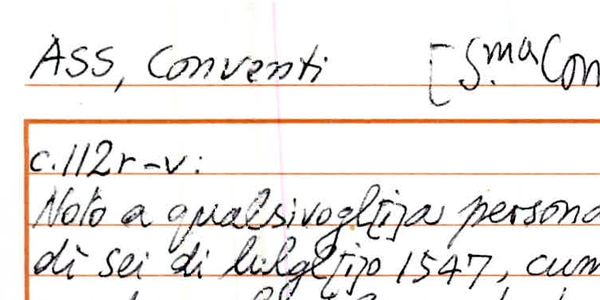 ASS, Conventi [S.ma Con
c.112r-v:
Noto a qualsivogl[i]a persona
di sei di lulgl[i]o 1547, cum